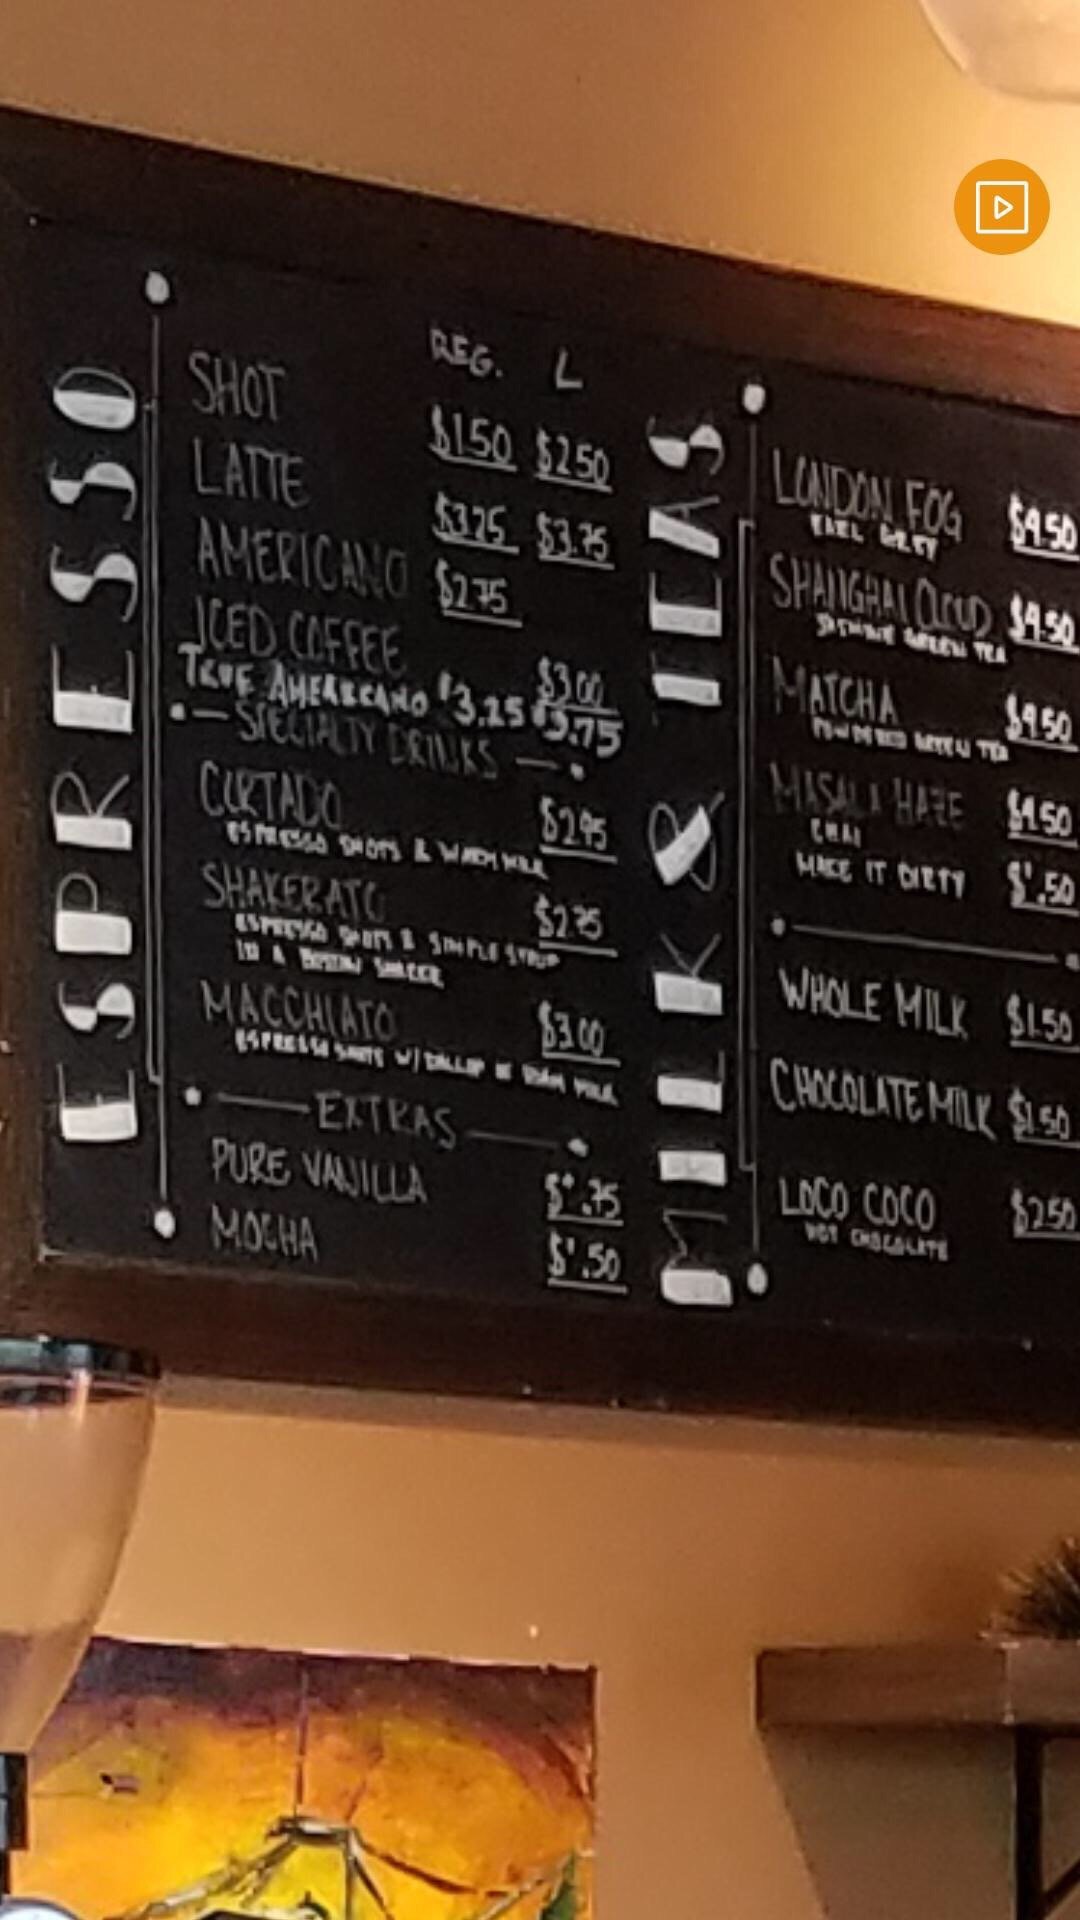 ESPRESSO
REG. L
SHOT $1.50 $2.50
LATTE $3.25 $3.75
AMERICANO $2.75
ICED COFFEE $3.00
TRUE AMERICANO $3.25 $3.75
SPECIALTY DRINKS
CORTADO $2.95
ESPRESSO SHOTS & WARM MILK
SHAKERATO $2.75
ESPRESSO SHOTS & SIMPLE SYRUP
IN A BOSTON SHAKER
MACCHIATO $3.00
ESPRESSO SHOTS W/ DALLOP OF FOAM MILK
EXTRAS
PURE VANILLA $.75
MOCHA $.50
MILK & TEAS
LONDON FOG $4.50
EARL GREY
SHANGHAI CLOUD $4.50
JASMINE GREEN TEA
MATCHA $4.50
POWDERED GREEN TEA
MASALA HAZE $4.50
CHAI
MAKE IT DIRTY $.50
WHOLE MILK $1.50
CHOCOLATE MILK $1.50
LOCO COCO $2.50
HOT CHOCOLATE